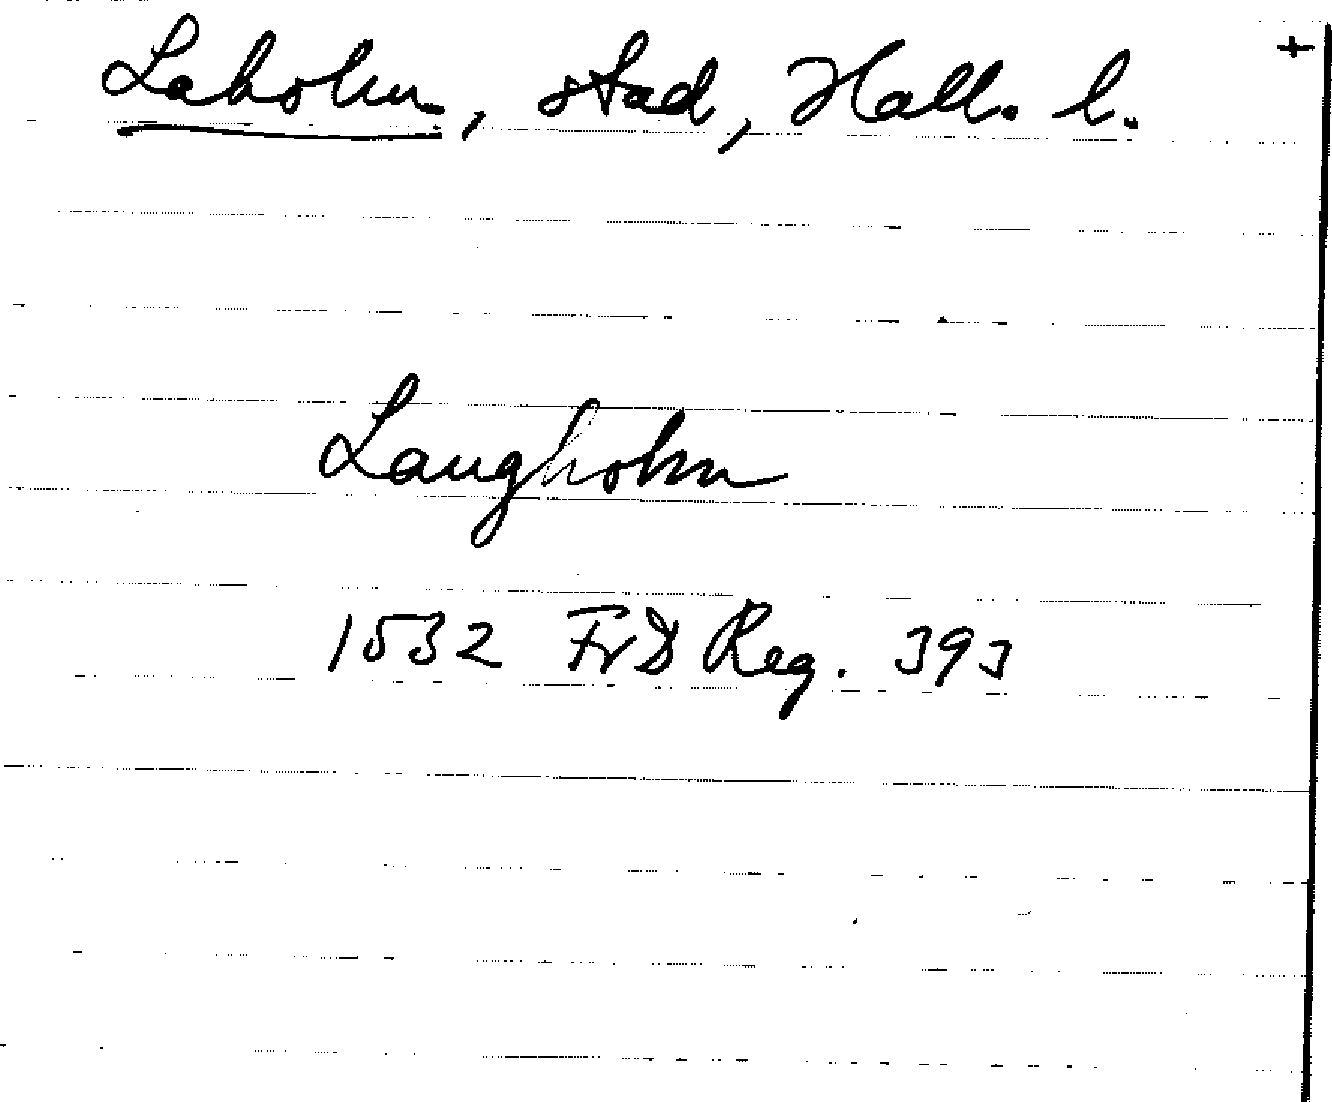 Laholm, stad, Hall. l. +
Laugholm
1532 FrD Reg. 393